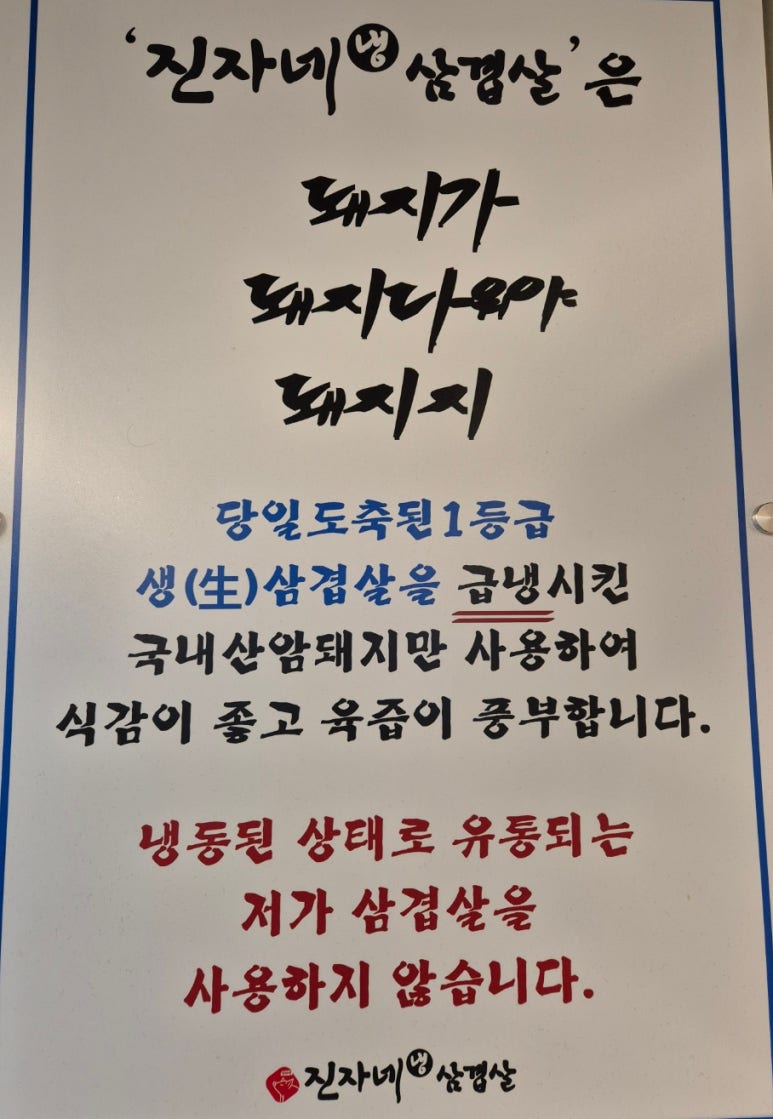 '진자네냉삼겹살'은
돼지가
돼지다워야
돼지지
당일도축된1등급
생(生)삼겹살을 급냉시킨
국내산암돼지만 사용하여
식감이 좋고 육즙이 풍부합니다.
냉동된 상태로 유통되는
저가 삼겹살을
사용하지 않습니다.
진자네냉삼겹살